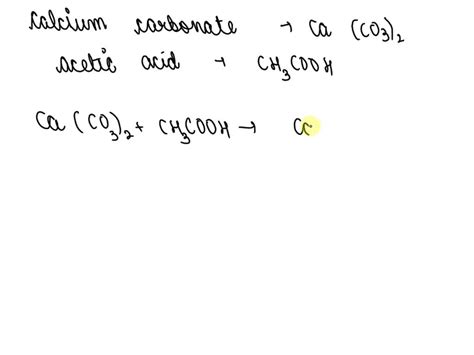 calcium carbonate → Ca (CO3)2
acetic acid → CH3COOH
Ca (CO3)2 + CH3COOH → Ca